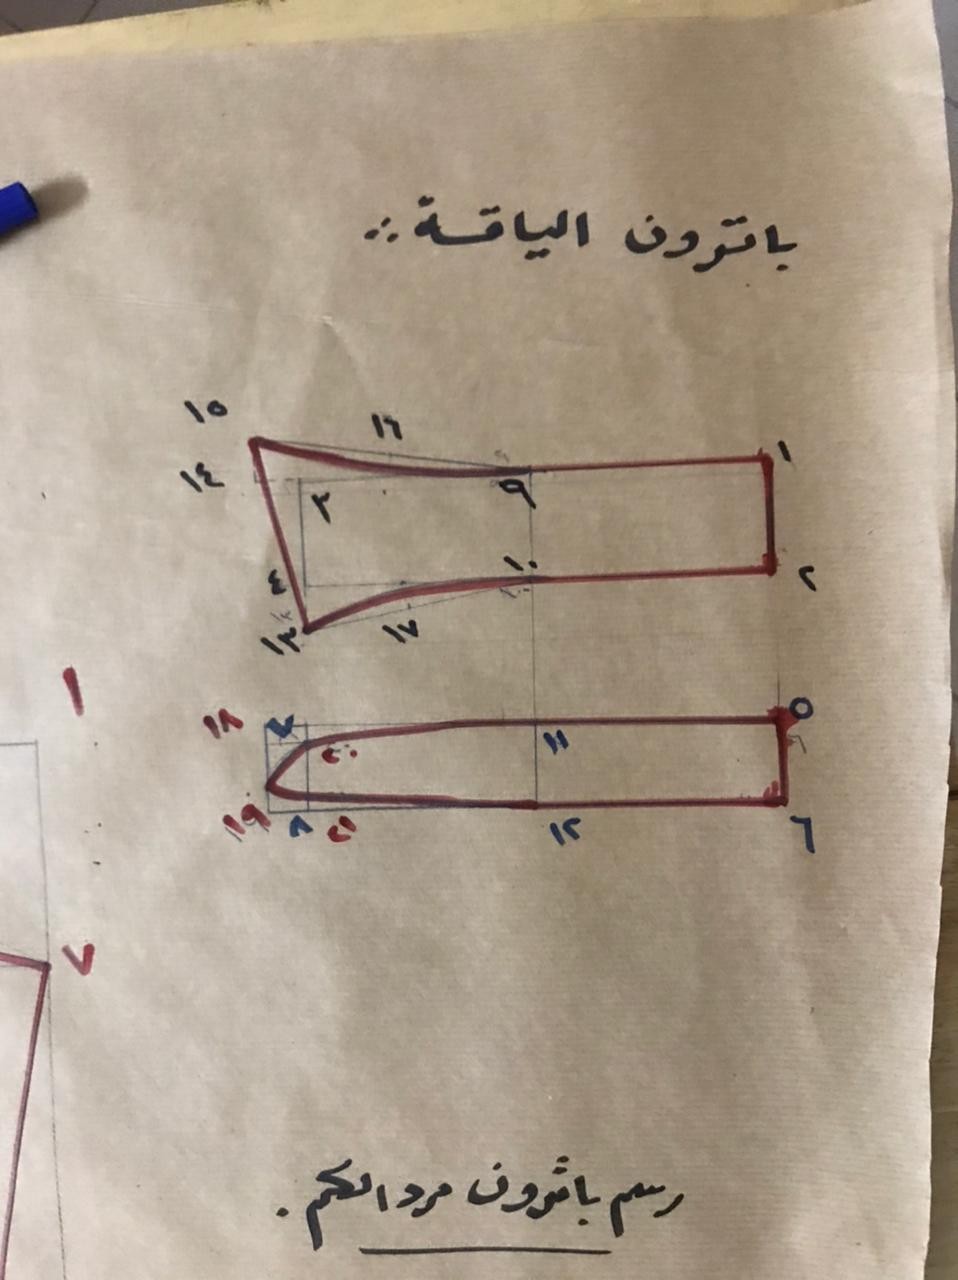 باترون الياقة :
١٥
١٦
١
١٤
٣
٩
٤
١٠
٢
١٣
١٧
١
١٨
٧
٢٠
١١
٥
١٩
٨
٢١
١٢
٦
٧
رسم باترون مرد الكم .